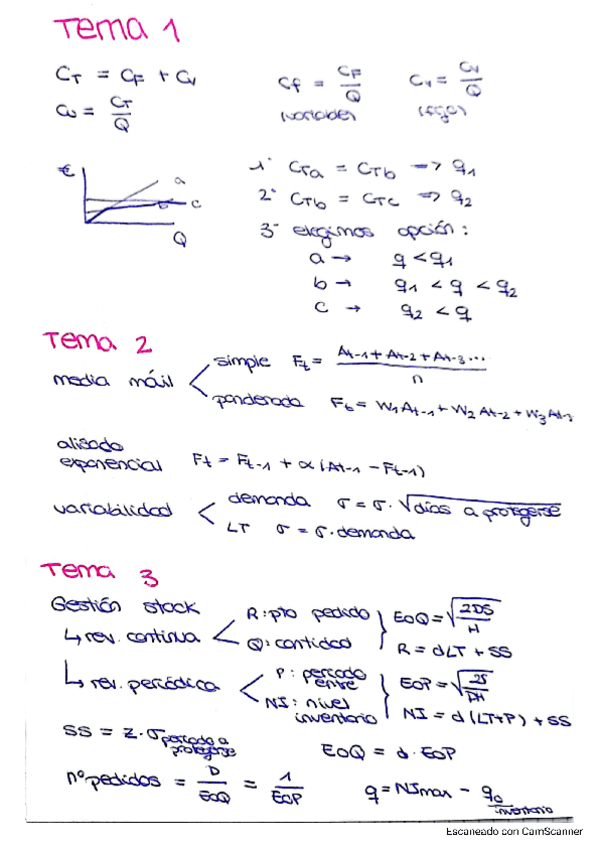 Tema 1
C_T = C_F + C_V    C_f = C_F/Q    C_v = C_V/Q
(variable)    (fijo)
C_u = C_T/Q
€
a
c
Q
1° C_Ta = C_Tb => q_1
2° C_Tb = C_Tc => q_2
3° elegimos opción:
a → q < q_1
b → q_1 < q < q_2
c → q_2 < q
Tema 2
media móvil
simple F_t = (A_t-1 + A_t-2 + A_t-3 ...)/n
ponderada F_t = W_1 A_t-1 + W_2 A_t-2 + W_3 A_t-3
alisado
exponencial F_t = F_t-1 + α (A_t-1 - F_t-1)
variabilidad
demanda σ = σ · √días a protegerse
LT σ = σ · demanda
Tema 3
Gestión stock
↳ rev. continua
R: pto pedido
Q: cantidad
EOQ = √(2DS/H)
R = dLT + SS
↳ rev. periódica
P: periodo entre
NI: nivel inventario
EOP = √(2S/DH)
NI = d (LT+P) + SS
SS = Z · σ periodo a protegerse
EOQ = d · EOP
nº pedidos = D/EOQ = 1/EOP
q = NI max - q_0 inventario
Escaneado con CamScanner